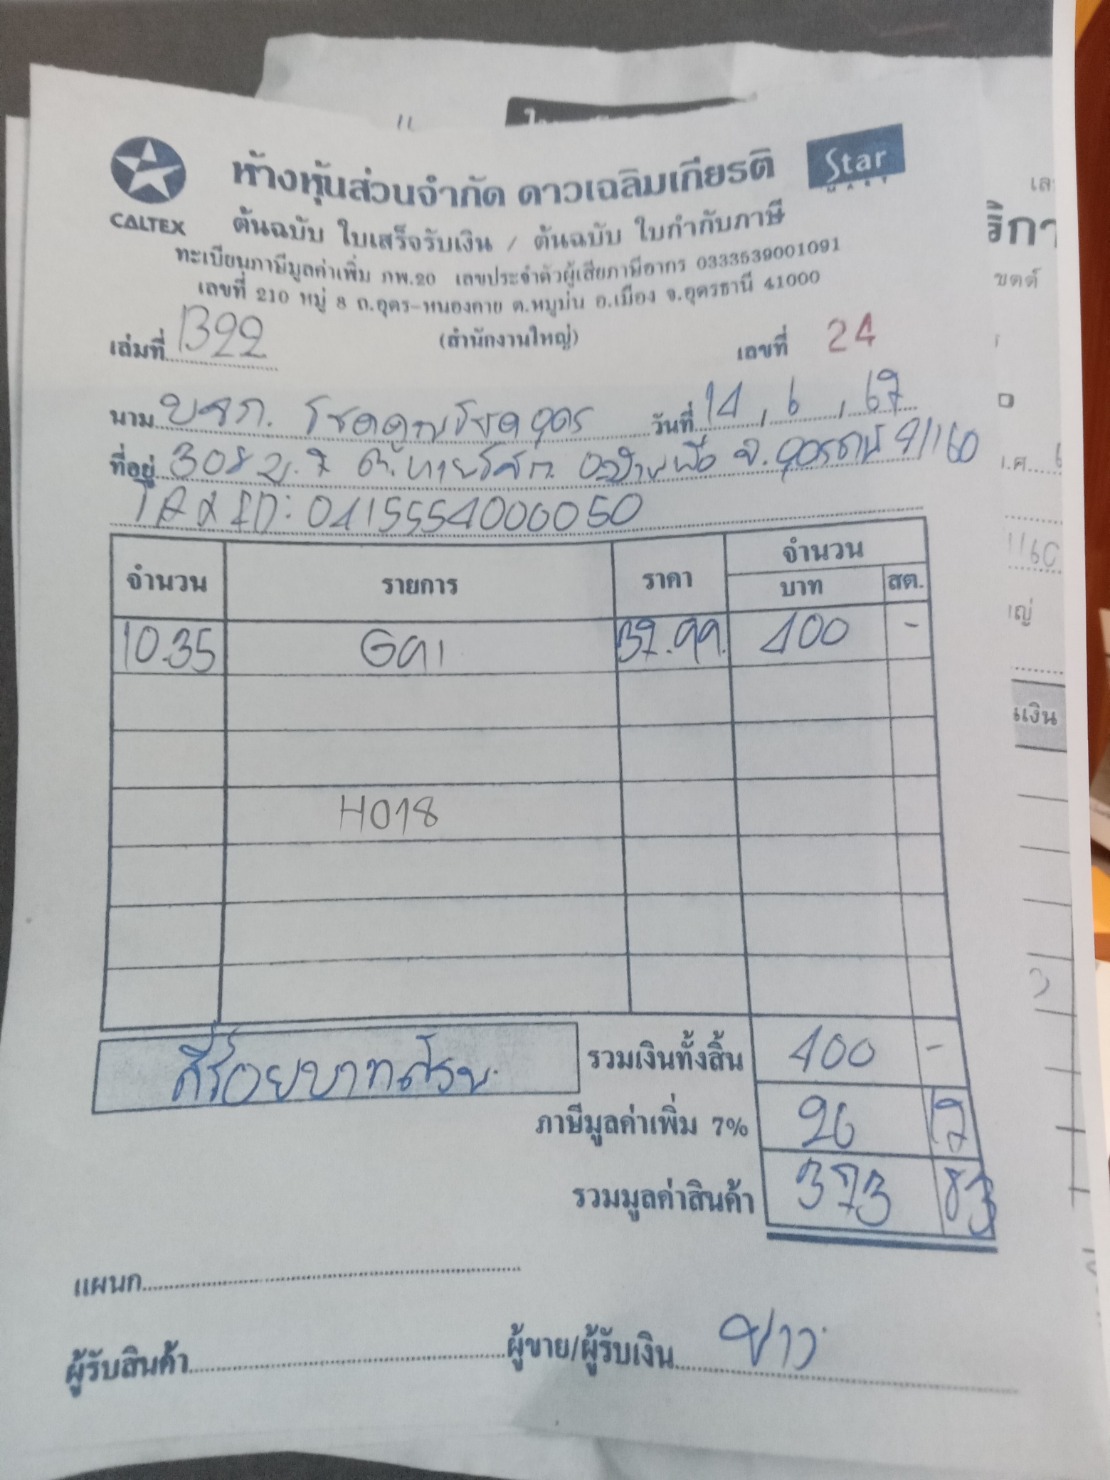 ห้างหุ้นส่วนจำกัด ดาวเฉลิมเกียรติ
Star
MART
CALTEX
ต้นฉบับ ใบเสร็จรับเงิน / ต้นฉบับ ใบกำกับภาษี
ทะเบียนภาษีมูลค่าเพิ่ม ภพ.20 เลขประจำตัวผู้เสียภาษีอากร 0333539001091
เลขที่ 210 หมู่ 8 ถ.อุดร-หนองคาย ต.หมูม่น อ.เมือง จ.อุดรธานี 41000
(สำนักงานใหญ่)
เล่มที่ 1322
เลขที่ 24
นาม บจก. โชคคูณโชค อุดร วันที่ 14, 6, 67
ที่อยู่ 308 ม.7 อ.บ้านผือ จ.อุดรธานี 41160
TAX ID: 0415554000050
จำนวน รายการ ราคา จำนวน
บาท สต.
10.35 G91 37.99. 400 -
H018
สี่ร้อยบาทถ้วน. รวมเงินทั้งสิ้น 400 -
ภาษีมูลค่าเพิ่ม 7% 26 17
รวมมูลค่าสินค้า 373 83
แผนก
ผู้รับสินค้า ผู้ขาย/ผู้รับเงิน
ริกา
1160
เงิน